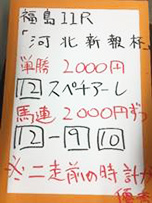 福島11R
「河北新報杯」
単勝 2000円
12 スペチアーレ
馬連 2000円ずつ
12-9 10
※二走前の時計が
優秀